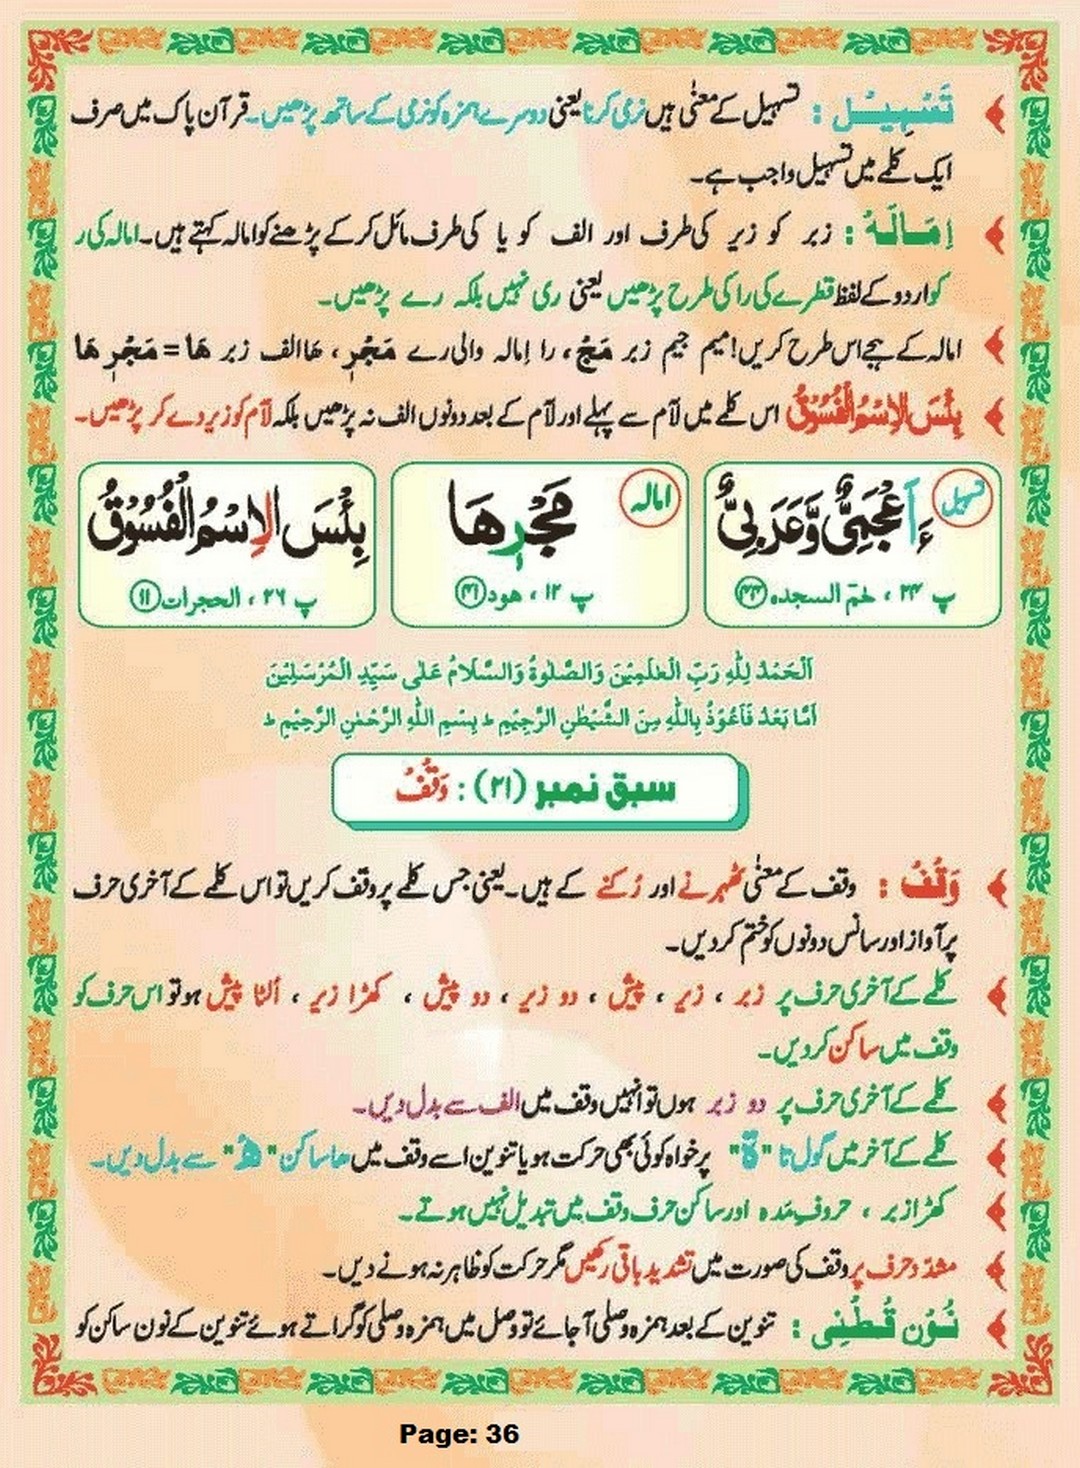 تَسْہِیْل : تسہیل کے معنٰی ہیں نرمی کرنا یعنی دوسرے ہمزہ کو نرمی کے ساتھ پڑھیں۔ قرآن پاک میں صرف
ایک کلمے میں تسہیل واجب ہے۔
اِمَالَہ : زبر کو زیر کی طرف اور الف کو یا کی طرف مائل کر کے پڑھنے کو امالہ کہتے ہیں۔ امالہ کی ر
کو اردو کے لفظ قطرے کی را کی طرح پڑھیں یعنی ری نہیں بلکہ رے پڑھیں۔
امالہ کے ہجے اس طرح کریں! میم جیم زبر مَجْ ، را اِمالہ والی رے مَجْرٖ ، ھا الف زبر ھَا = مَجْرٖ ھَا
بِئْسَ الِاسْمُ الْفُسُوْقُ اس کلمے میں لآم سے پہلے اور لآم کے بعد دونوں الف نہ پڑھیں بلکہ لآم کو زیر دے کر پڑھیں۔
تسہیل
ءَاَعْجَمِیٌّ وَّعَرَبِیٌّ
پ ۲۴ ، حٰمٓ السجدہ ۴۴
امالہ
مَجْرٖىهَا
پ ۱۲ ، ھود ۴۱
بِئْسَ الِاسْمُ الْفُسُوْقُ
پ ۲۶ ، الحجرات ۱۱
اَلْحَمْدُ لِلّٰهِ رَبِّ الْعٰلَمِیْنَ وَالصَّلٰوةُ وَالسَّلَامُ عَلٰی سَیِّدِ الْمُرْسَلِیْنَ
اَمَّا بَعْدُ فَاَعُوْذُ بِاللّٰهِ مِنَ الشَّیْطٰنِ الرَّجِیْمِ ط بِسْمِ اللّٰهِ الرَّحْمٰنِ الرَّحِیْمِ ط
سبق نمبر (۲۱) : وَقْفْ
وَقْفْ : وقف کے معنٰی ٹھہرنے اور رُکنے کے ہیں۔ یعنی جس کلمے پر وقف کریں تو اس کلمے کے آخری حرف
پر آواز اور سانس دونوں کو ختم کر دیں۔
کلمے کے آخری حرف پر زبر ، زیر ، پیش ، دو زیر ، دو پیش ، کھڑا زیر ، اُلٹا پیش ہو تو اس حرف کو
وقف میں ساکن کر دیں۔
کلمے کے آخری حرف پر دو زبر ہوں تو انہیں وقف میں الف سے بدل دیں۔
کلمے کے آخر میں گول تا "ۃ" پر خواہ کوئی بھی حرکت ہو یا تنوین اسے وقف میں ھا ساکن "ہْ" سے بدل دیں۔
کھڑا زبر ، حروفِ مدہ اور ساکن حرف وقف میں تبدیل نہیں ہوتے۔
مشدّد حرف پر وقف کی صورت میں تشدید باقی رکھیں مگر حرکت کو ظاہر نہ ہونے دیں۔
نُوْن قُطْنِی : تنوین کے بعد ہمزہ وصلی آجائے تو وصل میں ہمزہ وصلی کو گراتے ہوئے تنوین کے نون ساکن کو
Page: 36